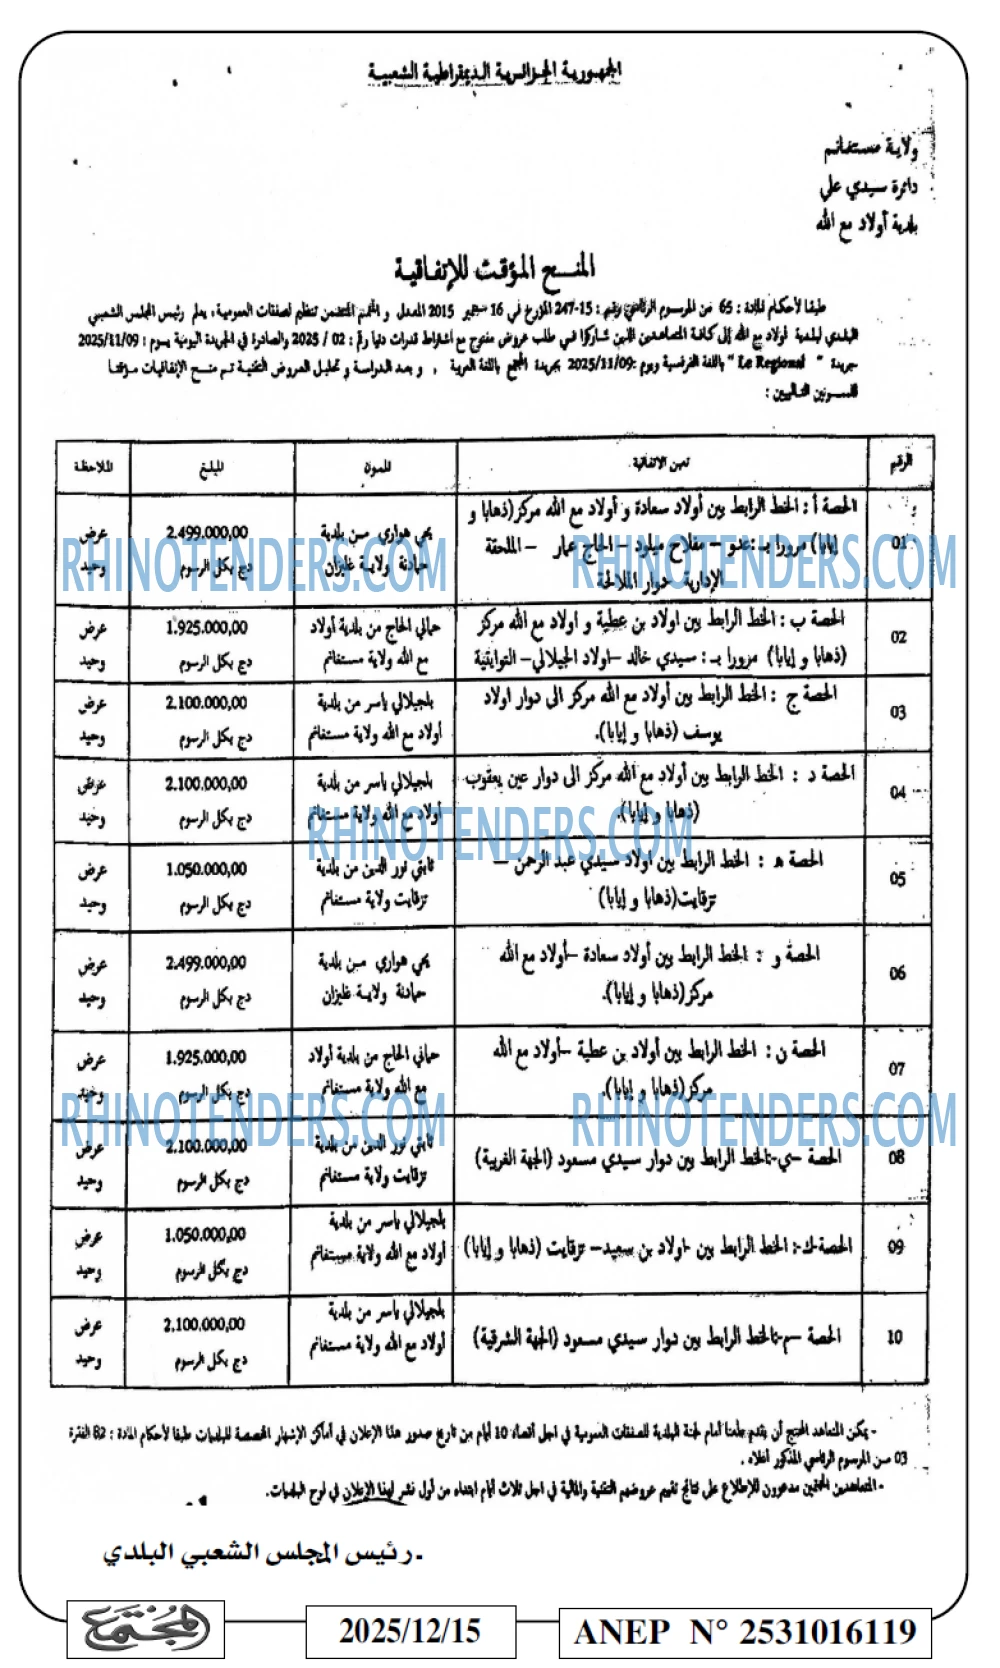 الجمهورية الجزائرية الديمقراطية الشعبية
ولاية مستغانم
دائرة سيدي علي
بلدية أولاد مع الله
المنح المؤقت للإتفاقية
طبقا لأحكام المادة : 65 من المرسوم الرئاسي رقم : 15-247 المؤرخ في 16 سبتمبر 2015 المعدل و المتمم المتضمن تنظيم لصفقات العمومية، يعلم رئيس المجلس الشعبي
البلدي لبلدية أولاد مع الله إلى كافة المتعاهدين الذين شاركوا في طلب عروض مفتوح مع اشتراط قدرات دنيا رقم : 02 / 2025 والصادرة في الجريدة اليومية يسوم : 2025/11/09
جريدة " Le Regional " باللغة الفرنسية ويوم :2025/11/09 بجريدة المجتمع باللغة العربية ، و بعد الدراسة و تحليل العروض التقنية تم منح الإتفاقيات مؤقتا
للممونين التاليين :
الرقم تعين الاتفاقية الممون المبلغ الملاحظة
الحصة أ : الخط الرابط بين أولاد سعادة و أولاد مع الله مركز(ذهابا و
01 إيابا) مرورا بـ : عدو – مفلاح ميلود – الحاج عمار – الملحقة يحي هواري من بلدية 2.499.000,00 عرض
الإدارية دوار الملالحة حمادنة ولاية غليزان دج بكل الرسوم وحيد
02 الحصة ب : الخط الرابط بين اولاد بن عطية و اولاد مع الله مركز حماني الحاج من بلدية أولاد 1.925.000,00 عرض
(ذهابا و إيابا) مرورا بـ : سيدي خالد –اولاد الجيلالي– التواتية مع الله ولاية مستغانم دج بكل الرسوم وحيد
03 الحصة ج : الخط الرابط بين أولاد مع الله مركز الى دوار اولاد بلجيلالي ياسر من بلدية 2.100.000,00 عرض
يوسف (ذهابا و إيابا). أولاد مع الله ولاية مستغانم دج بكل الرسوم وحيد
04 الحصة د : الخط الرابط بين أولاد مع الله مركز الى دوار عين يعقوب بلجيلالي ياسر من بلدية 2.100.000,00 عرض
(ذهابا و إيابا). أولاد مع الله ولاية مستغانم دج بكل الرسوم وحيد
05 الحصة هـ : الخط الرابط بين اولاد سيدي عبد الرحمن – ثابتي نور الدين من بلدية 1.050.000,00 عرض
تزقايت(ذهابا و إيابا) تزقايت ولاية مستغانم دج بكل الرسوم وحيد
06 الحصة و : الخط الرابط بين أولاد سعادة –أولاد مع الله يحي هواري من بلدية 2.499.000,00 عرض
مركز(ذهابا و إيابا). حمادنة ولاية غليزان دج بكل الرسوم وحيد
07 الحصة ن : الخط الرابط بين أولاد بن عطية –أولاد مع الله حماني الحاج من بلدية أولاد 1.925.000,00 عرض
مركز(ذهابا و إيابا). مع الله ولاية مستغانم دج بكل الرسوم وحيد
08 الحصة –ي-:الخط الرابط بين دوار سيدي مسعود (الجهة الغربية) ثابتي نور الدين من بلدية 2.100.000,00 عرض
تزقايت ولاية مستغانم دج بكل الرسوم وحيد
09 الحصة-ك-: الخط الرابط بين اولاد بن سعيد– تزقايت (ذهابا و إيابا) بلجيلالي ياسر من بلدية 1.050.000,00 عرض
أولاد مع الله ولاية مستغانم دج بكل الرسوم وحيد
10 الحصة –م-:الخط الرابط بين دوار سيدي مسعود (الجهة الشرقية) بلجيلالي ياسر من بلدية 2.100.000,00 عرض
أولاد مع الله ولاية مستغانم دج بكل الرسوم وحيد
- يمكن المتعاهد المحتج أن يقدم طعنا أمام لجنة البلدية للصفقات العمومية في اجل أقصاه 10 أيام من تاريخ صدور هذا الإعلان في أماكن الإشهار المخصصة للبلديات طبقا لأحكام المادة : 82 الفقرة
03 من المرسوم الرئاسي المذكور أعلاه .
- المتعاهدين المحتجين مدعوون للإطلاع على نتائج تقييم عروضهم التقنية والمالية في اجل ثلاث أيام ابتداء من أول نشر لهذا الإعلان في لوح البلديات.
.رئيس المجلس الشعبي البلدي
المجتمع
2025/12/15
ANEP N° 2531016119
RHINOTENDERS.COM
RHINOTENDERS.COM
RHINOTENDERS.COM
RHINOTENDERS.COM
RHINOTENDERS.COM